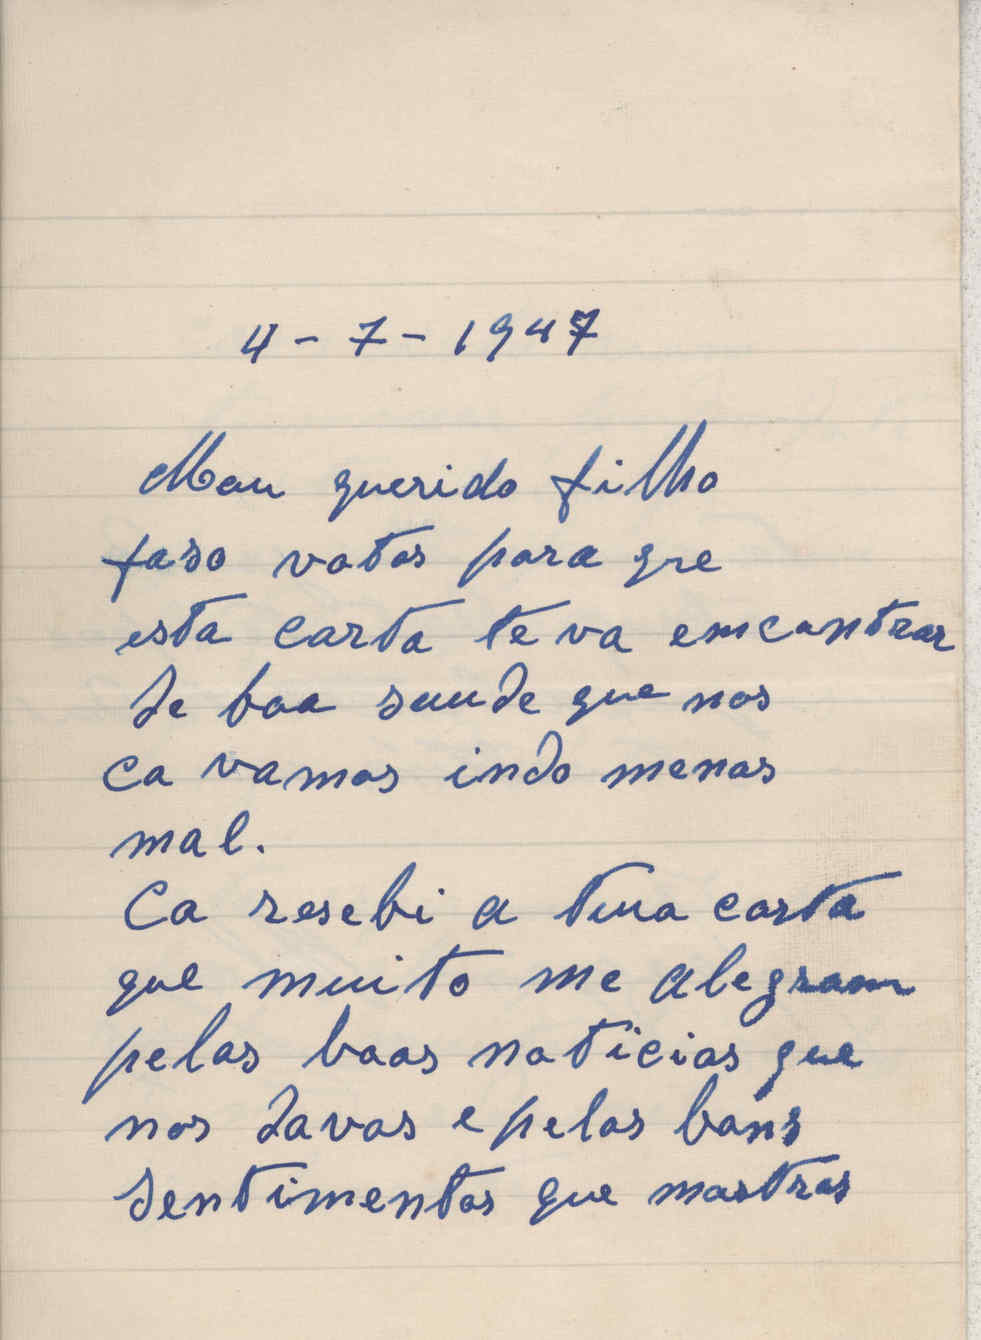 4 - 7 - 1947
Meu querido filho
faso votos para que
esta carta te va emcontrar
de boa saude que nos
ca vamos indo menos
mal.
Ca resebi a tua carta
que muito me alegraou
pelas boas noticias que
nos davas e pelos bons
sentimentos que mostras